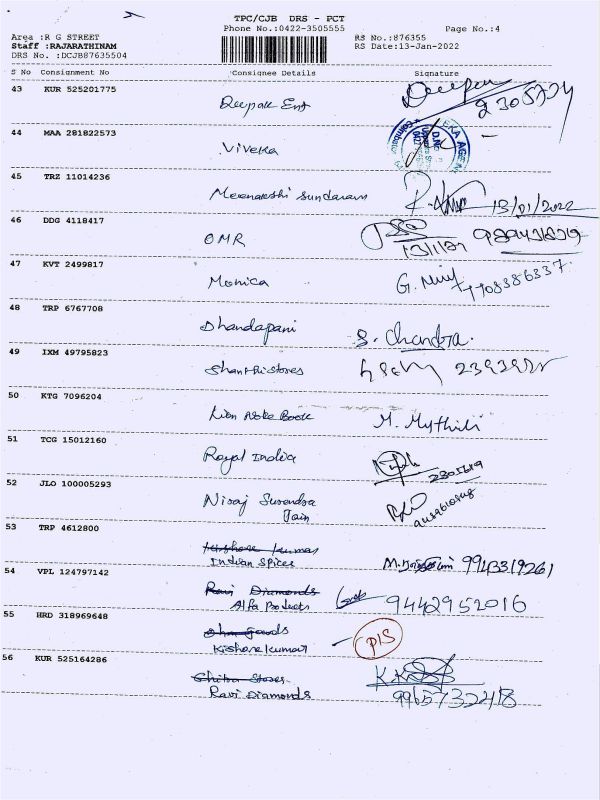 TPC/CJB DRS - PCT
Phone No.:0422-3505555 Page No.:4
Area :R G STREET RS No.:876355
Staff :RAJARATHINAM RS Date:13-Jan-2022
DRS No. :DCJB87635504
S No Consignment No Consignee Details Signature
43 KUR 525201775 Deepak Ent Deepan
2305774
44 MAA 281822573 Viveka
45 TRZ 11014236 Meenakshi Sundaram 13/01/2022
46 DDG 4118417 OMR
47 KVT 2499817 Monica G. 7708386337.
48 TRP 6767708 Dhandapani S. Chandra.
49 IXM 49795823 Shanthi Stores
50 KTG 7096204 Lion Note Book M. Mythili
51 TCG 15012160 Royal India 2305619
52 JLO 100005293 Niraj Surendra
Jain
53 TRP 4612800 Kishore Kumar
Indian Spices 9943319261
54 VPL 124797142 Ravi Diamonds
Alfa Products 9442952016
55 HRD 318969648
Kishore Kumar P/S
56 KUR 525164286 Chitra Stores
Ravi Diamonds 9965732418